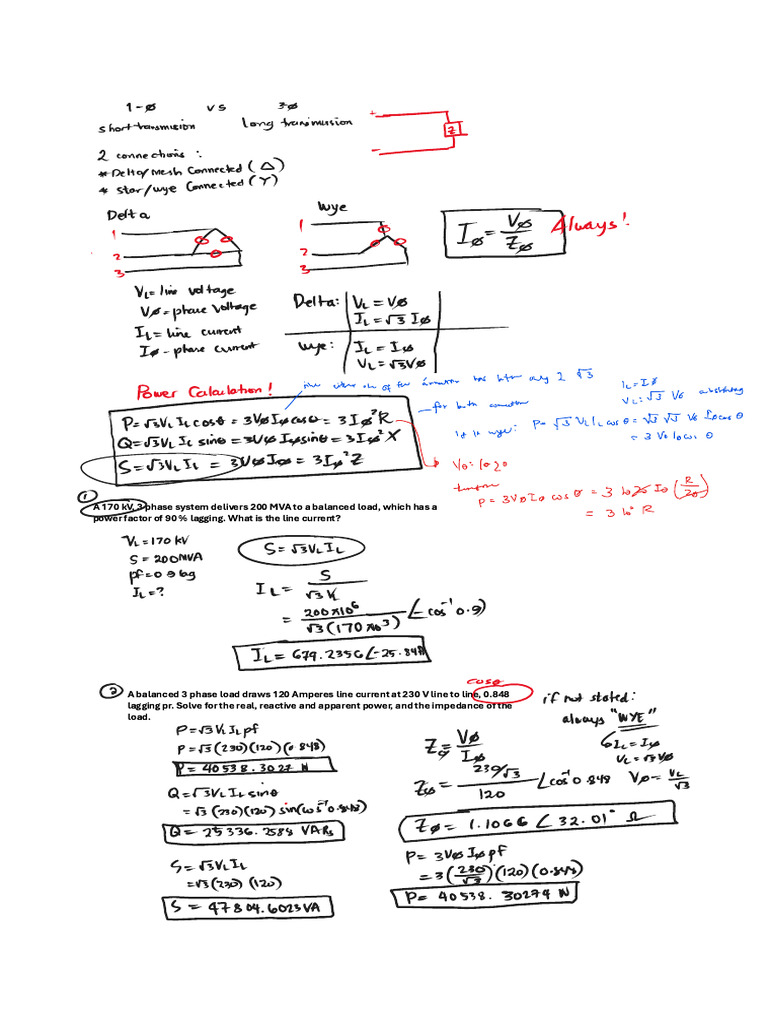 1-ø vs 3-ø
short transmission long transmission
+
Z
-
2 connections :
* Delta/Mesh Connected (Δ)
* star/wye Connected (Y)
Delta
1
2
3
Wye
1
2
3
Iø = Vø/Zø Always!
VL = line voltage
Vø = phase voltage
IL = line current
Iø - phase current
Delta: VL = Vø
IL = √3 Iø
Wye: IL = Iø
VL = √3Vø
Power Calculation!
P = √3VL IL cosθ = 3Vø Iø cosθ = 3 Iø²R
Q = √3VL IL sinθ = 3Vø Iø sinθ = 3Iø² X
S = √3VL IL = 3Vø Iø = 3Iø² Z
any 2 √3
for both
IL = Iø
VL = √3 Vø
wye: P = √3 VL IL cos θ = √3 √3 Vø Iø cos θ
= 3 Vø Iø cos θ
P = 3VøIø cos θ = 3 Iø Zø Iø (R/Zø)
= 3 Iø² R
1
A 170 kV, 3 phase system delivers 200 MVA to a balanced load, which has a
power factor of 90 % lagging. What is the line current?
VL = 170 kV
S = 200MVA
pf = 0.9 lag
IL = ?
S = √3VL IL
IL = S/√3VL
= 200x10⁶/√3(170x10³) ∠-cos⁻¹0.9
IL = 679.2356∠-25.84
2
cosθ
A balanced 3 phase load draws 120 Amperes line current at 230 V line to line, 0.848
lagging pr. Solve for the real, reactive and apparent power, and the impedance of the
load.
if not stated:
always "WYE"
IL = Iø
VL = √3Vø
Vø = VL/√3
P = √3VL IL pf
P = √3(230)(120)(0.848)
P = 40538.3027 W
Q = √3VL IL sinθ
= √3(230)(120) sin(cos⁻¹0.848)
Q = 25336.2588 VARs
S = √3VL IL
= √3(230)(120)
S = 47804.6023VA
Zø = Vø/Iø
Zø = 230/√3/120 ∠cos⁻¹0.848
Zø = 1.1066∠32.01° Ω
P = 3Vø Iø pf
= 3(230/√3)(120)(0.848)
P = 40538.30274 W